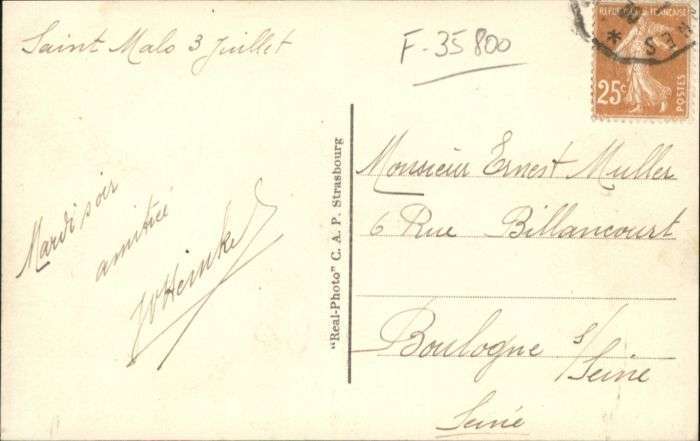 Saint Malo 3 Juillet
F-35800
RÉPUBLIQUE FRANÇAISE
25c
POSTES
Mardi soir
amitiée
"Real-Photo" C. A. P. Strasbourg
Monsieur Ernest Muller
6 Rue Billancourt
Boulogne s/
Seine
Seine